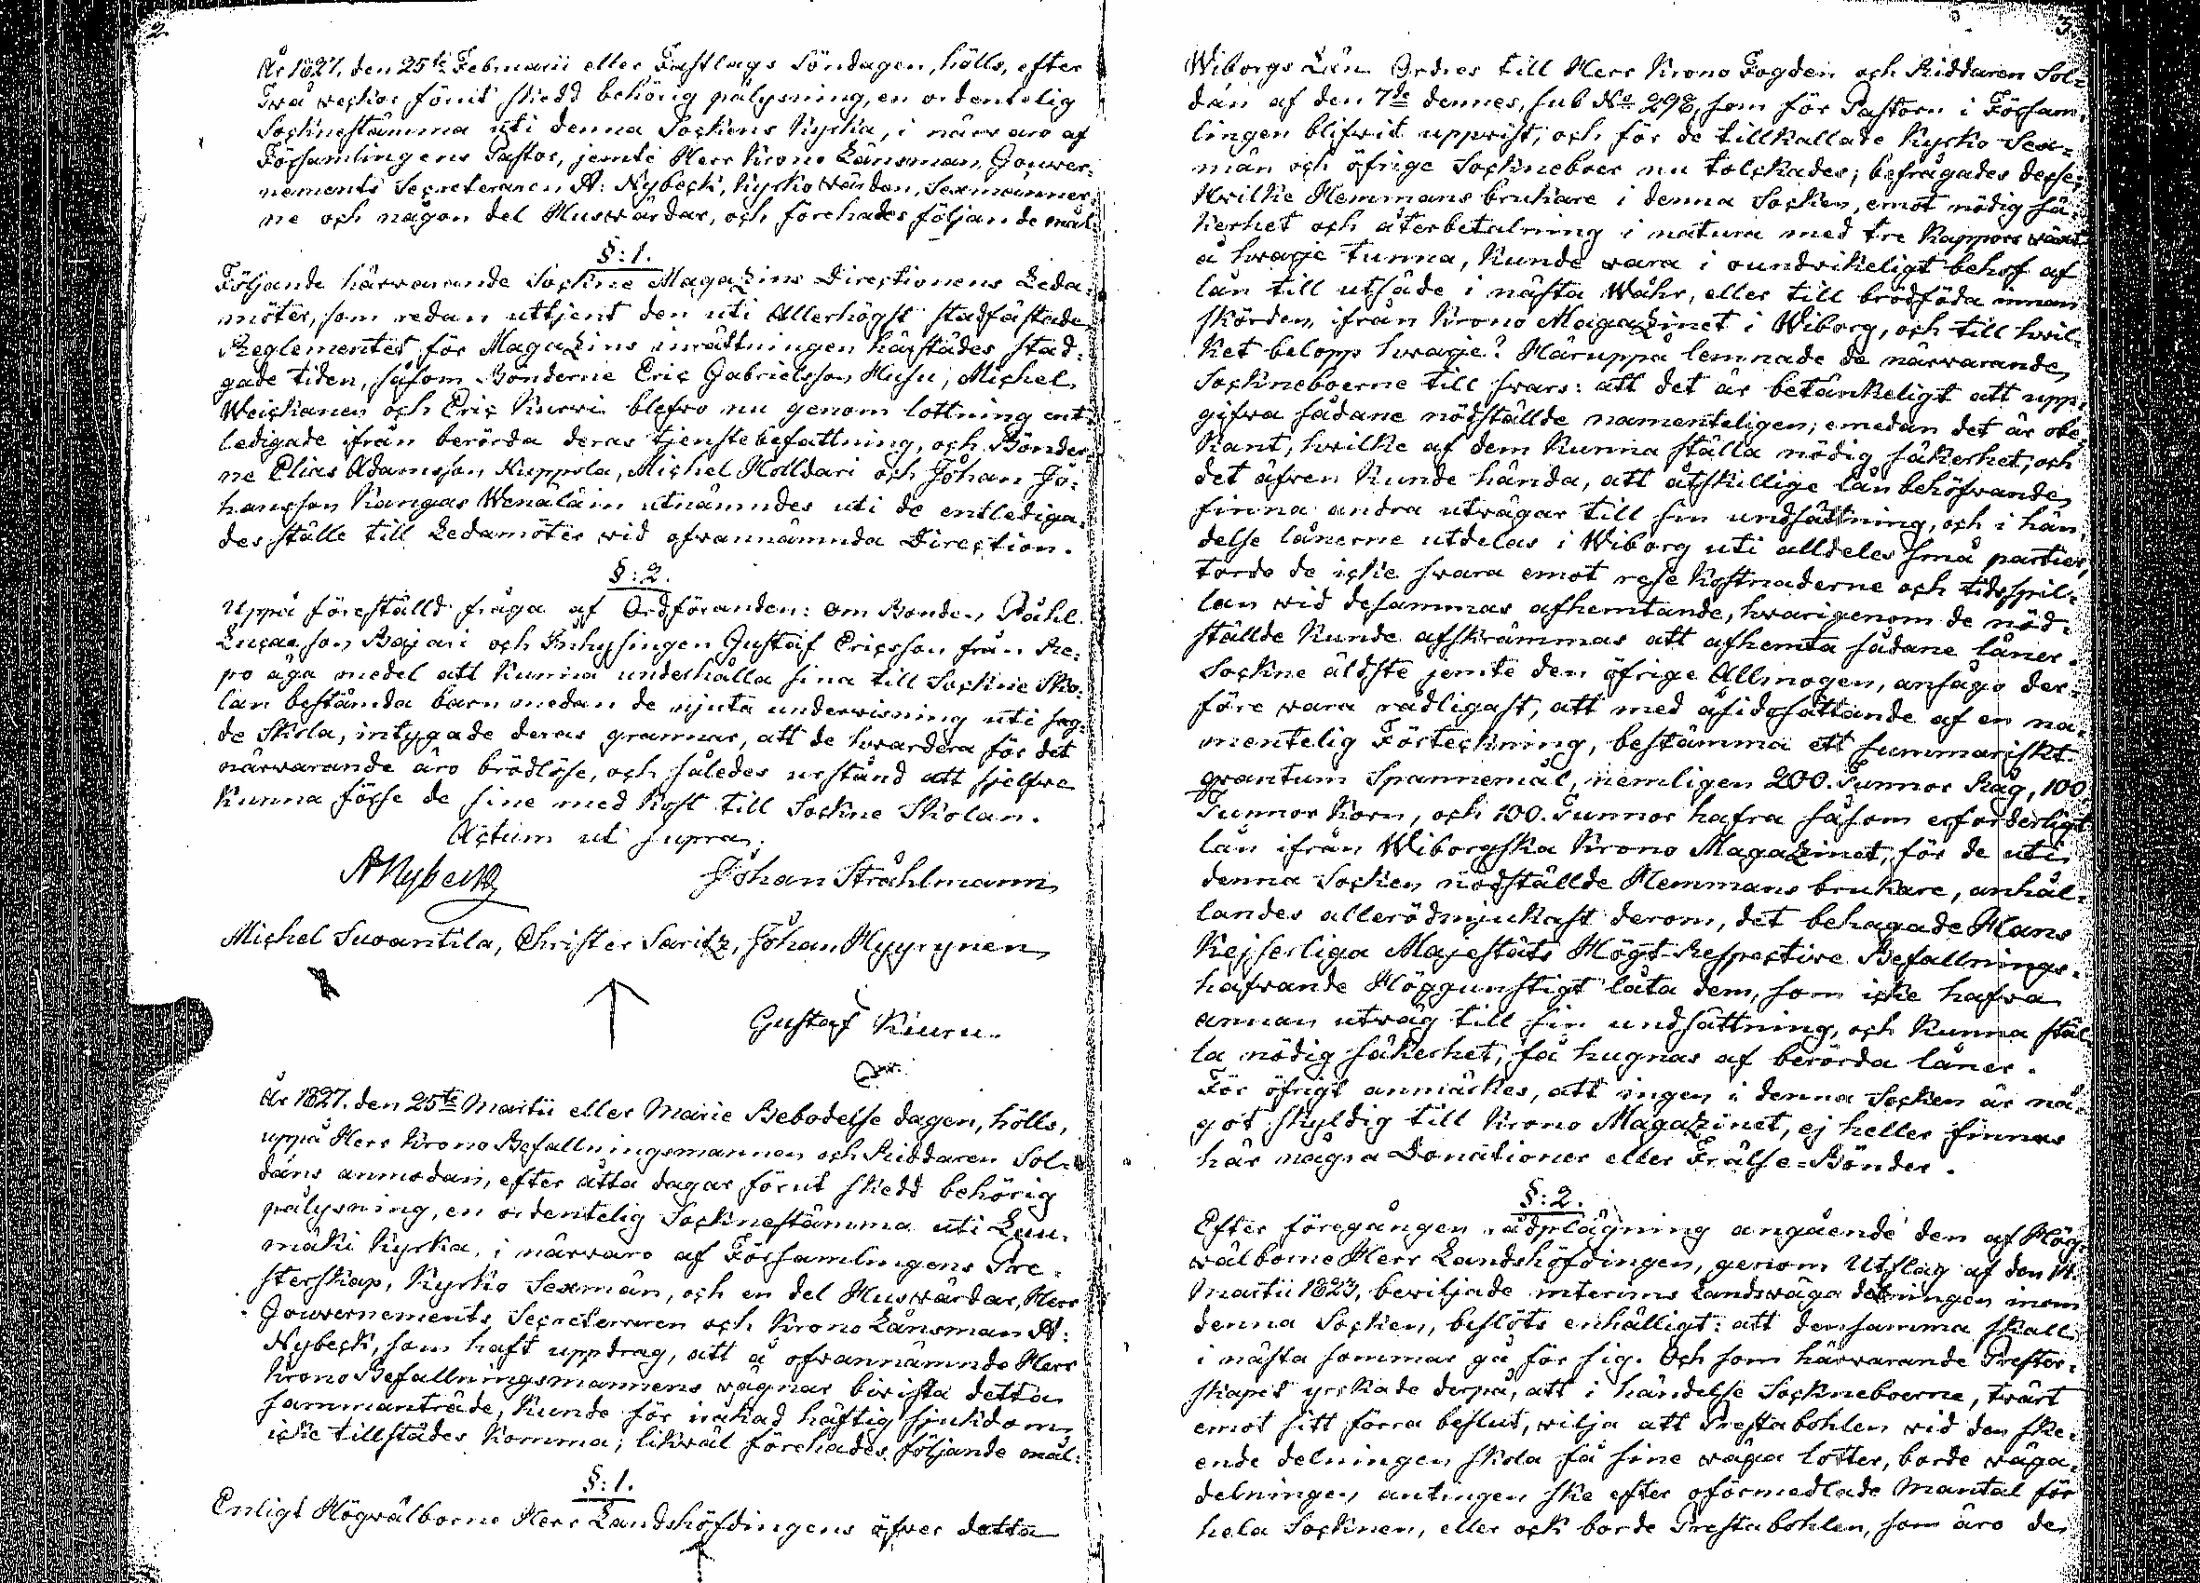 2.
År 1827. den 25te Februarii eller Fastlags Söndagen, hölls, efter
Två veckor förut skedd behörig pålysning, en ordentelig
Socknestämma uti denna Sockens Kyrka, i närvaro af
Församlingens Pastor, jemte Herr Krono Länsman, Gouver-
nements Secreteraren A: Nybeck, Kyrko wärden, Sexmänner-
ne och någon del Huswärdar, och förehades följande mål:
§:1.
Följande härvarande Sockne Magazins Directionens Leda-
möter, som redan uttjent den uti Allerhögst stadfästade
Reglementet för Magazins inrättningen härstädes stad-
gade tiden, såsom Bönderne Eric Gabrielsson Husu, Michel
Weickanen och Eric Kurvi blefvo nu genom lottning ent-
ledigade ifrån berörda deras tjenstebefattning, och Bönder-
ne Elias Adamsson Nuppola, Michel Holldari och Johan Jo-
hansson Kangas Wenäläin utnämndes uti de entlediga-
des ställe till Ledamöter vid ofvannämnda Direction.
§:2.
Uppå föreställd fråga af Ordföranden: om Bonden Påhl
Lucasson Bajari och Inhysingen Gustaf Ericsson från Re-
po äga medel att kunna underhålla sina till Sockne Sko-
lan bestämda barn medan de njuta undervisning uti sag-
de Skola, intygade deras grannar, att de hvardera för det
närvarande äro brödlöse, och således urstånd att sjelfve
kunna förse de sine med kost till Sockne Skolan.
Actum ut supra.
A Nybeck Johan Stråhlmann
Michel Suvantila, Christer Saritz, Johan Hyyrynen
Gustaf Kiuru.
År 1827. den 25te Martii eller Marie Bebodelse dagen, hölls,
uppå Herr Krono Befallningsmannen och Riddaren Sol-
dáns anmodan, efter åtta dagar förut skedd behörig
pålysning, en ordentelig Socknestämma uti Luu-
mäki Kyrka, i närvaro af Församlingens Pre-
sterskap, Kyrko Sexmän, och en del Huswärdar, Herr
Gouvernements Secreteraren och Krono Länsman A:
Nybeck, som haft uppdrag, att å ofvannämnde Herr
Krono Befallningsmannens vägnar bivista detta
sammanträde, kunde för iråkad häftig sjukdom
icke tillstädes komma; likväl förehades följande mål:
§:1.
Enligt Högvälborne Herr Landshöfdingens öfver detta
3.
Wiborgs Län Ordres till Herr Krono Fogden och Riddaren Sol-
dán af den 7de dennes, sub No 298, som för Pastorn i Försam-
lingen blifvit uppvist, och för de tillkallade Kyrko Sex-
män och öfrige Sockneboer nu tolckades; befrågades desse:
Hvilke Hemmans brukare i denna Socken, emot nödig sä-
kerhet och återbetalning i natura med tre kappors växt
å hvarje tunna, kunde vara i oundvikeligt behof af
lån till utsäde i nästa Wåhr, eller till brödföda innan
skörden, ifrån Krono Magazinet i Wiborg, och till hvil-
ket belopp hvarje? Häruppå lemnade de närvarande
Sockneboerne till svars: att det är betänkeligt att upp-
gifva sådane nödställde namenteligen; emedan det är obe-
kant, hvilke af dem kunna ställa nödig säkerhet; och
det äfven kunde hända, att åtskillige lån behöfvande
finna andra utvägar till sin undsättning, och i hän-
delse lånerne utdelas i Wiborg uti alldeles små partier,
torde de icke svara emot rese kostnaderne och tidsspil-
lan vid desammas afhemtande, hvarigenom de nöd-
ställde kunde afskrämmas att afhemta sådane låner.
Sockne äldste jemte den öfrige Allmogen, ansågo der-
före vara rådligast, att med åsidosättande af en na-
mentelig Förteckning, bestämma ett summariskt
qvantum Spannemål, nemligen 200. Tunnor Råg, 100.
Tunnor Korn, och 100. Tunnor hafra såsom erforderligt
lån ifrån Wiborgska Krono Magazinet, för de uti
denna Socken nödställde Hemmans brukare, anhål-
landes allerödmjukast derom, det behagade Hans
Kejserliga Majestäts Högt Respective Befallnings-
hafvande Höggunstigt låta dem, som icke hafva
annan utväg till sin undsättning, och kunna stäl-
la nödig säkerhet, få hugnas af berörda låner.
För öfrigt anmärkes, att ingen i denna Socken är nå-
got skyldig till Krono Magazinet, ej heller finnes
här några Donationer eller Frälse-Bönder.
§:2.
Efter föregången rådplägning angående den af Hög-
välborne Herr Landshöfdingen, genom Utslag af den 14
Martii 1823, beviljade interims Landsväga delningen inom
denna Socken, beslöts enhälligt: att densamma skall
i nästa sommar gå för sig. Och som härvarande Prester-
skapet yrckade derpå, att i händelse Sockneboerne, tvärt
emot sitt förra beslut, vilja att Prestabohlen vid den ske-
ende delningen skola få sine väga lotter, borde väga-
delningen antingen ske efter oförmedlade Mantal för
hela Socknen, eller ock borde Prestabohlen, som äro de